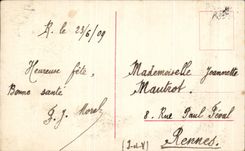 R. le 23/6/09
Heureuse fête,
Bonne santé
F. J. Morel
Mademoiselle Jeannette
Mautrot.
8, Rue Paul Féval
Rennes.
(I-et-V)